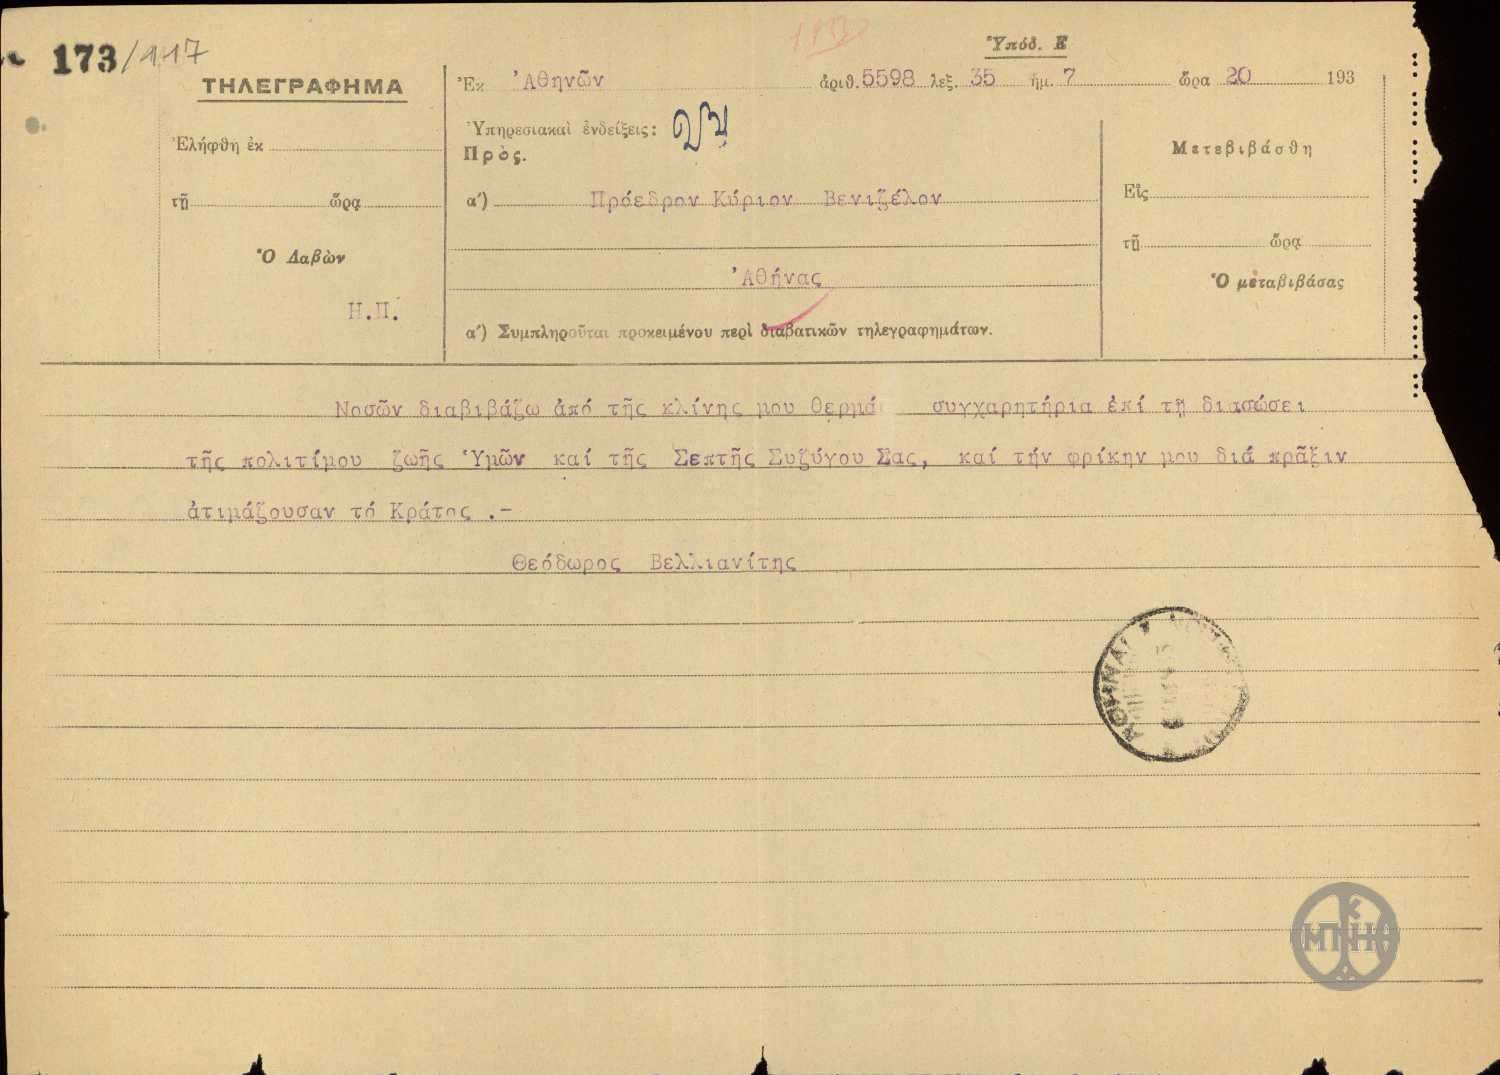 173/117
Ὑπόδ. Ε
ΤΗΛΕΓΡΑΦΗΜΑ
Ἐκ Ἀθηνῶν ἀριθ. 5598 λεξ. 35 ἡμ. 7 ὥρα 20 193
Ἐλήφθη ἐκ
Ὑπηρεσιακαὶ ἐνδείξεις:
Πρὸς.
Μετεβιβάσθη
τῇ ὥρᾳ
α') Πρόεδρον Κύριον Βενιζέλον
Εἰς
Ὁ Λαβὼν
τῇ ὥρᾳ
Ἀθήνας
Ὁ μεταβιβάσας
Η.Π.
α') Συμπληροῦται προκειμένου περὶ διαβατικῶν τηλεγραφημάτων.
Νοσῶν διαβιβάζω ἀπό τῆς κλίνης μου θερμά συγχαρητήρια ἐπί τῇ διασώσει
τῆς πολιτίμου ζωῆς Ὑμῶν καί τῆς Σεπτῆς Συζύγου Σας, καί τήν φρίκην μου διά πρᾶξιν
ἀτιμάζουσαν τό Κράτος .-
Θεόδωρος Βελλιανίτης
ΑΘΗΝΑΙ